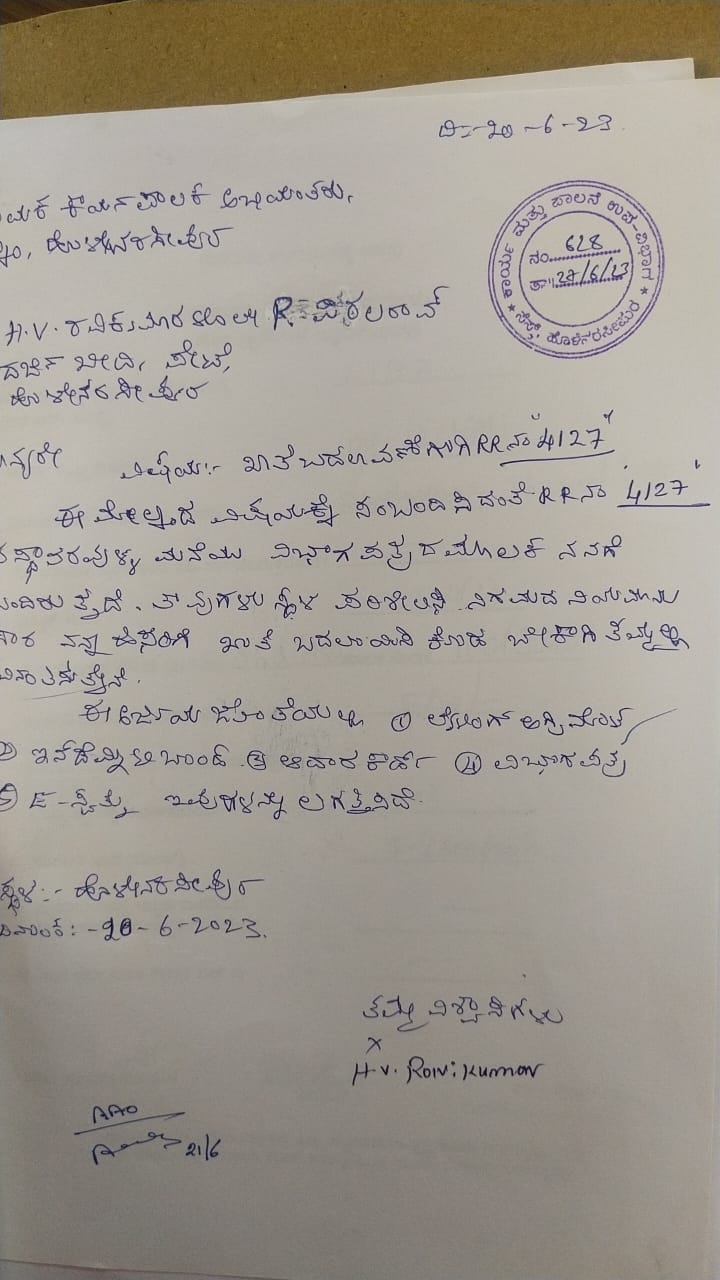 ದಿ:-20-6-23
ಕಾರ್ಯನಿರ್ವಾಹಕ ಅಭಿಯಂತರು,
ಹೊಳೇನರಸೀಪುರ
ಕಾರ್ಯ ಮತ್ತು ಪಾಲನೆ ಉಪ-ವಿಭಾಗ
ನಂ. 628
ತಾ|| 27/6/23
ಸೆಸ್ಕ್, ಹೊಳೆನರಸೀಪುರ
H.V. ರವಿಕುಮಾರ R. ವಿಠಲರಾವ್
ದರ್ಜಿ ಬೀದಿ, ಪೇಟೆ,
ಹೊಳೇನರಸೀಪುರ
ನ್ಯರೇ ವಿಷಯ:- ಖಾತೆ ಬದಲಾವಣೆಗಾಗಿ RR ನಂ "4127"
ಈ ಮೇಲ್ಕಂಡ ವಿಷಯಕ್ಕೆ ಸಂಬಂದಿಸಿದಂತೆ RR ನಂ '4127'
ಸ್ಥಾವರವುಳ್ಳ ಮನೆಯು ವಿಭಾಗ ಪತ್ರದ ಮೂಲಕ ನನಗೆ
ಬಂದಿರುತ್ತದೆ. ತಾವುಗಳು ಸ್ಥಳ ಪರಿಶೀಲಿಸಿ ನಿಗಮದ ನಿಯಮಾನು
ಸಾರ ನನ್ನ ಹೆಸರಿಗೆ ಖಾತೆ ಬದಲಾಯಿಸಿ ಕೊಡ ಬೇಕಾಗಿ ತಮ್ಮಲ್ಲಿ
ವಿನಂತಿಸುತ್ತೇನೆ.
ಈ ಅರ್ಜಿಯ ಜೊತೆಯಲ್ಲಿ ① ಅಗ್ರಿಮೆಂಟ್
② ಇನ್‌ಡೆಮ್ನಿಟಿ ಬಾಂಡ್ ③ ಆದಾರ ಕಾರ್ಡ್ ④ ವಿಭಾಗಪತ್ರ
⑤ E-ಸ್ವತ್ತು ಇವುಗಳನ್ನು ಲಗತ್ತಿಸಿದೆ.
ಸ್ಥಳ:- ಹೊಳೇನರಸೀಪುರ
ದಿನಾಂಕ:-20-6-2023.
ತಮ್ಮ ವಿಶ್ವಾಸಿಗಳು
x
H.V. Ravi Kumar
AAO
21/6